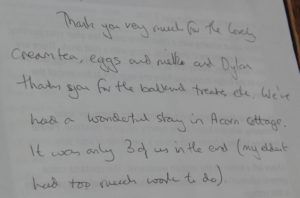 Thank you very much for the lovely
cream tea, eggs and milk and Dylan
thanks you for the treats etc. We've
had a wonderful stay in Acorn cottage.
It was only 3 of us in the end (my eldest
had too much work to do).